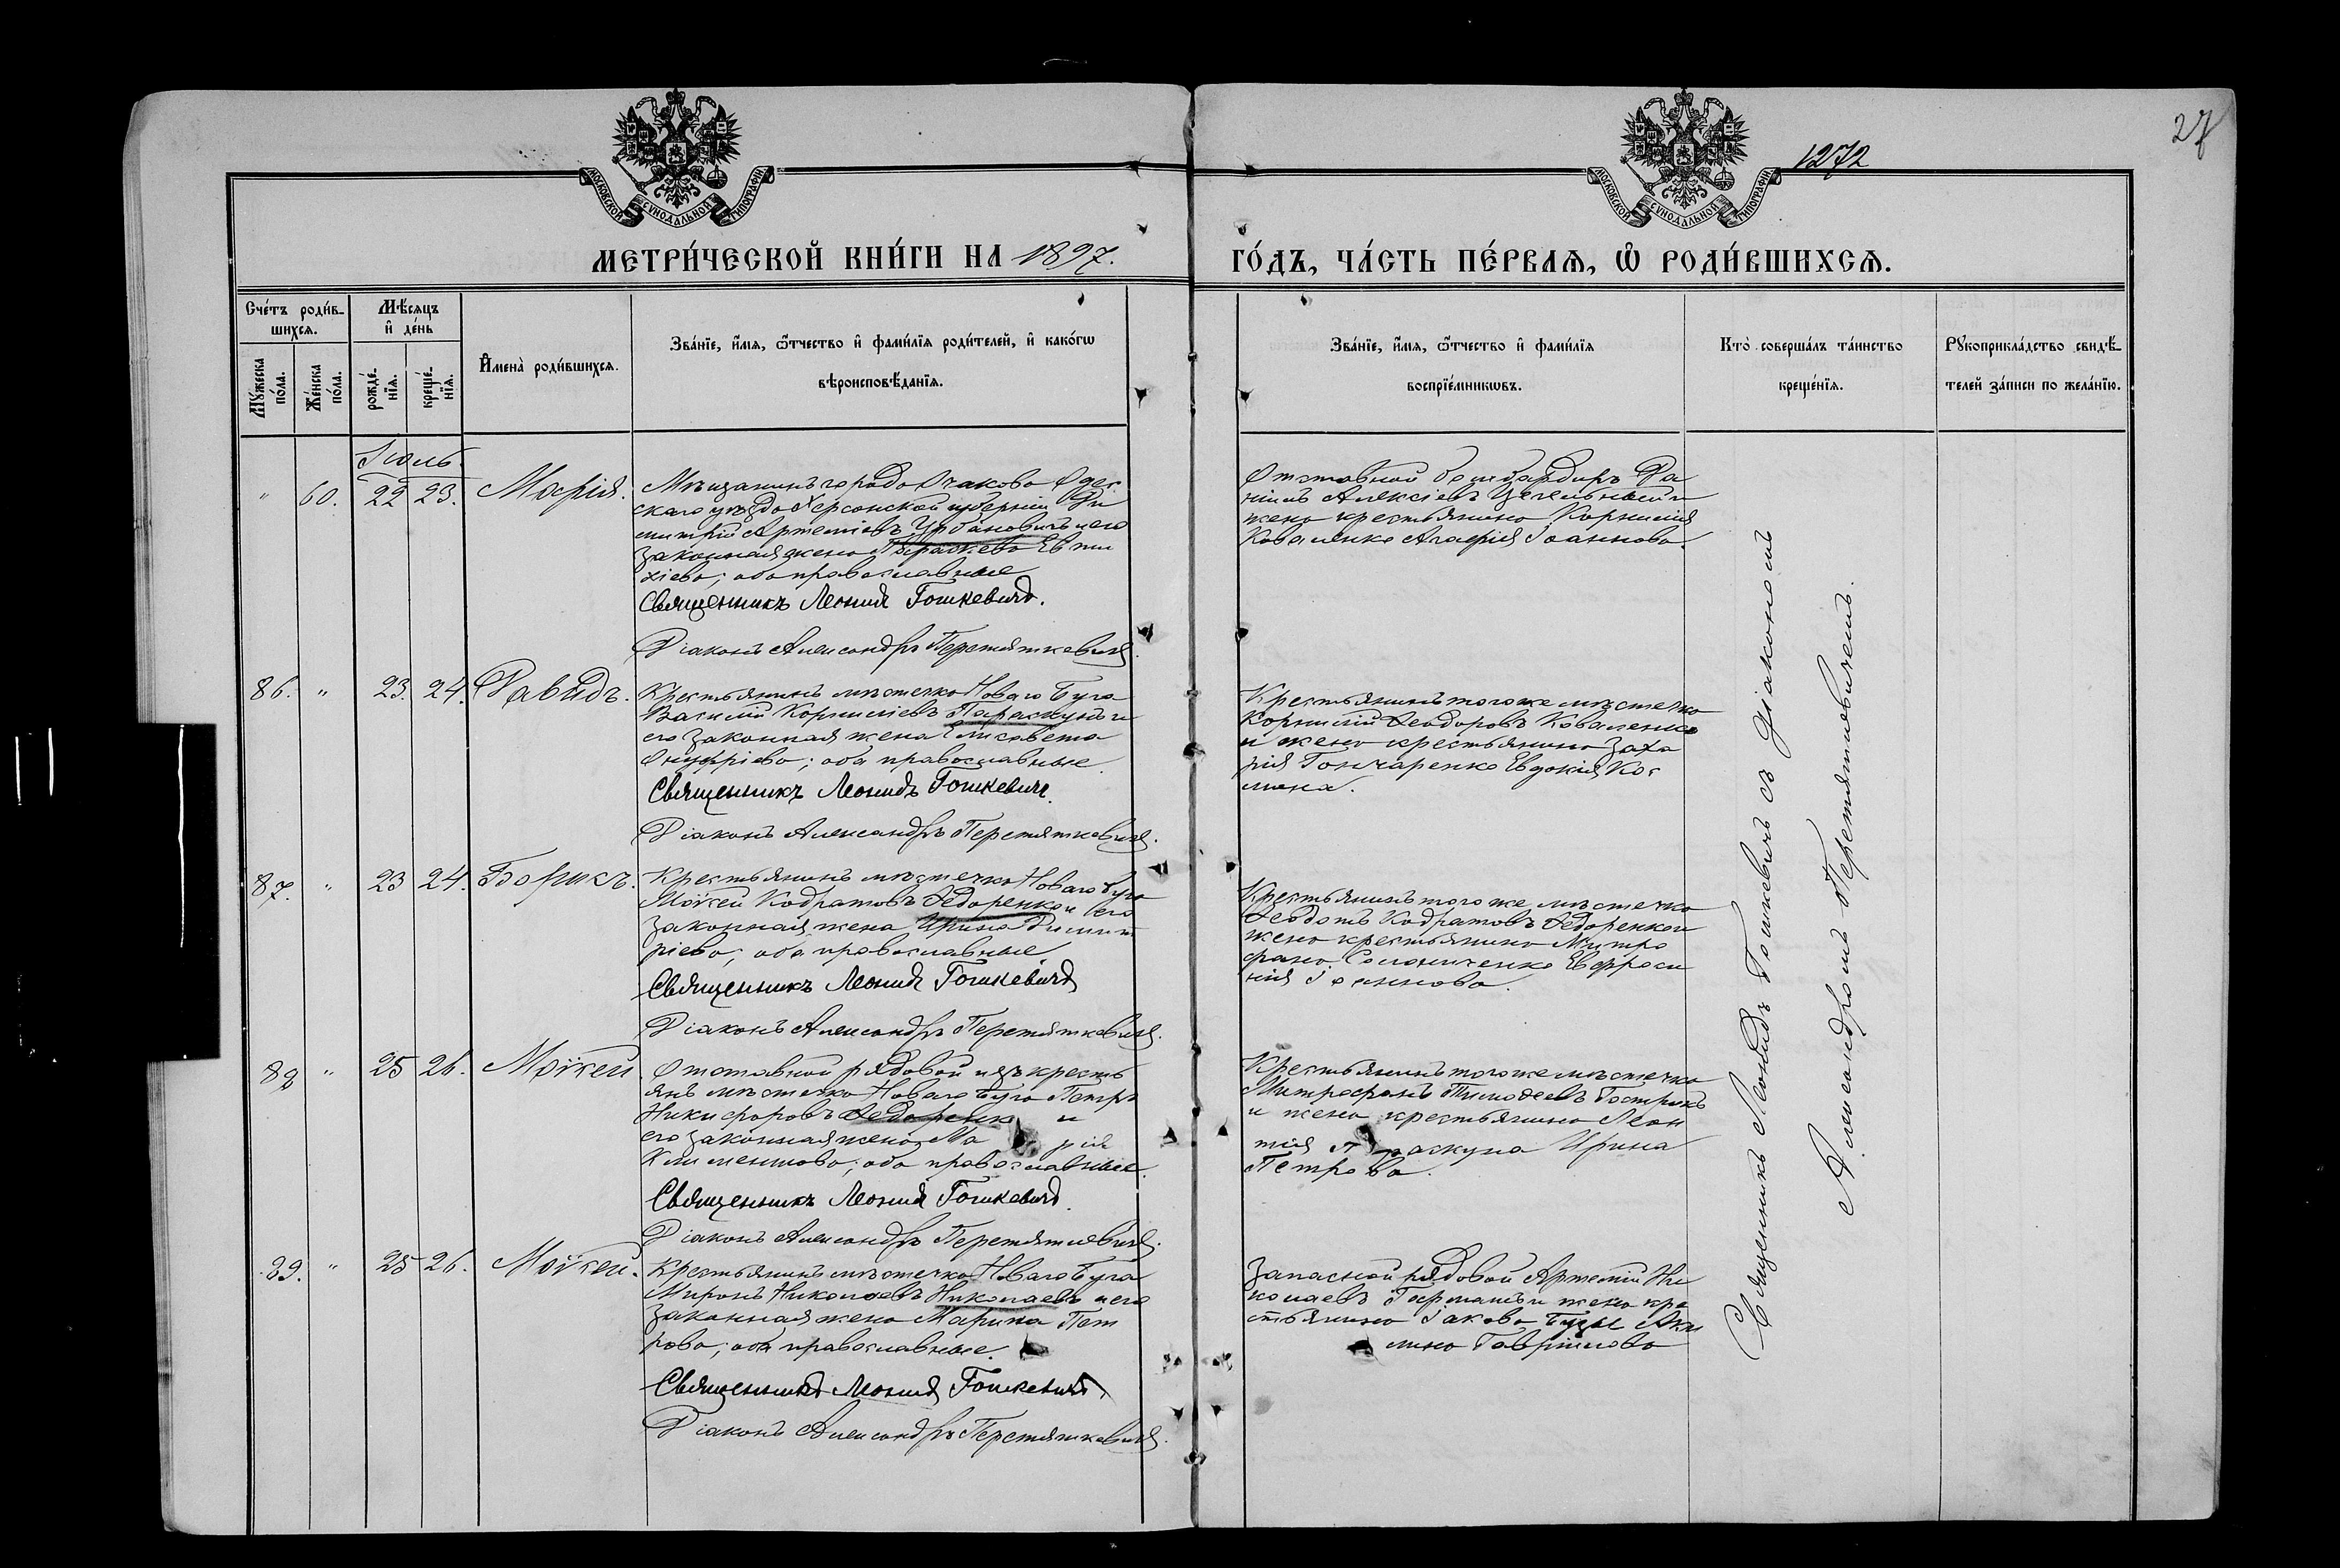 27
1272
МОСКОВСКОЙ СѴНОДАЛЬНОЙ ТИПОГРАФІИ
МОСКОВСКОЙ СѴНОДАЛЬНОЙ ТИПОГРАФІИ
МЕТРИ́ЧЕСКОЙ КНИ́ГИ НА 1897.
ГО́ДЪ, ЧА́СТЬ ПЕ́РВАѦ, Ѡ҆ РОДИ́ВШИХСѦ.
Сче́тъ роди́в-
шихсѧ.
Мꙋ́жеска
по́ла.
Же́нска
по́ла.
Мѣ́сѧцъ
и҆ де́нь
рожде́-
нїѧ.
креще́-
нїѧ.
И҆мена̀ роди́вшихсѧ.
Зва́нїе, и҆́мѧ, ѻ҆́тчество и҆ фами́лїѧ роди́телей, и҆ како́гѡ
вѣроисповѣ́данїѧ.
Зва́нїе, и҆́мѧ, ѻ҆́тчество и҆ фами́лїѧ
воспрїе́мникѡвъ.
Кто̀ соверша́лъ та́инство
креще́нїѧ.
Рꙋкоприкла́дство свидѣ́-
телей за́писи по жела́нїю.
Іюль.
" 60. 22 23. Марія.
Мѣщанинъ города Очакова Одес
скаго уѣзда Херсонской губерніи Ди
митрій Артеміевъ Урбановичъ и его
законная жена Параскева Евти
хіева; оба православные
Священникъ Леонидъ Гошкевичъ.
Діаконъ Александръ Перетяткевичъ.
Отставной бомбардиръ Да
ніилъ Алексіевъ и
жена крестьянина Корнилія
Коваленко Агафія Іоаннова.
86. " 23. 24. Давидъ.
Крестьянинъ мѣстечка Новаго Буга
Василій Корниліевъ Параскунъ и
его законная жена Елисавета
Онуфріева; оба православные.
Священникъ Леонидъ Гошкевичъ.
Діаконъ Александръ Перетяткевичъ.
Крестьянинъ того же мѣстечка
Корнилій Ѳеодоровъ Коваленко
и жена крестьянина Заха
рія Гончаренко Евдокія Кос
мина.
87. " 23 24. Борисъ.
Крестьянинъ мѣстечка Новаго Буга
Мокей Кодратовъ Ѳедоренко и его
законная жена Ирина Димит
ріева; оба православные
Священникъ Леонидъ Гошкевичъ
Діаконъ Александръ Перетяткевичъ.
Крестьянинъ того же мѣстечка
Ѳеодотъ Кодратовъ Ѳедоренко и
жена крестьянина Митро
фана Соломченко Евфроси
нія Іоаннова.
88 " 25 26. Мокей
Отставной рядовой изъ кресть
янъ мѣстечка Новаго Буга Петръ
Никифоровъ Ѳедоренко и
его законная жена Ма рія
Климентова; оба православные.
Священникъ Леонидъ Гошкевичъ.
Діаконъ Александръ Перетяткевичъ.
Крестьянинъ того же мѣстечка
Митрофанъ Тимоѳеевъ
и жена крестьянина Леон
тія Параскуна Ирина
Петрова.
89. " 25 26. Мокей.
Крестьянинъ мѣстечка Новаго Буга
Миронъ Николаевъ Николаевъ и его
законная жена Марина Пет
рова; оба православные.
Священникъ Леонидъ Гошкевичъ.
Діаконъ Александръ Перетяткевичъ.
Запасной рядовой Артемій Ни
колаевъ и жена кре
стьянина Іакова Бузы Аки
лина Гавріилова
Священникъ Леонидъ Гошкевичъ съ діакономъ
Александромъ Перетяткевичемъ.